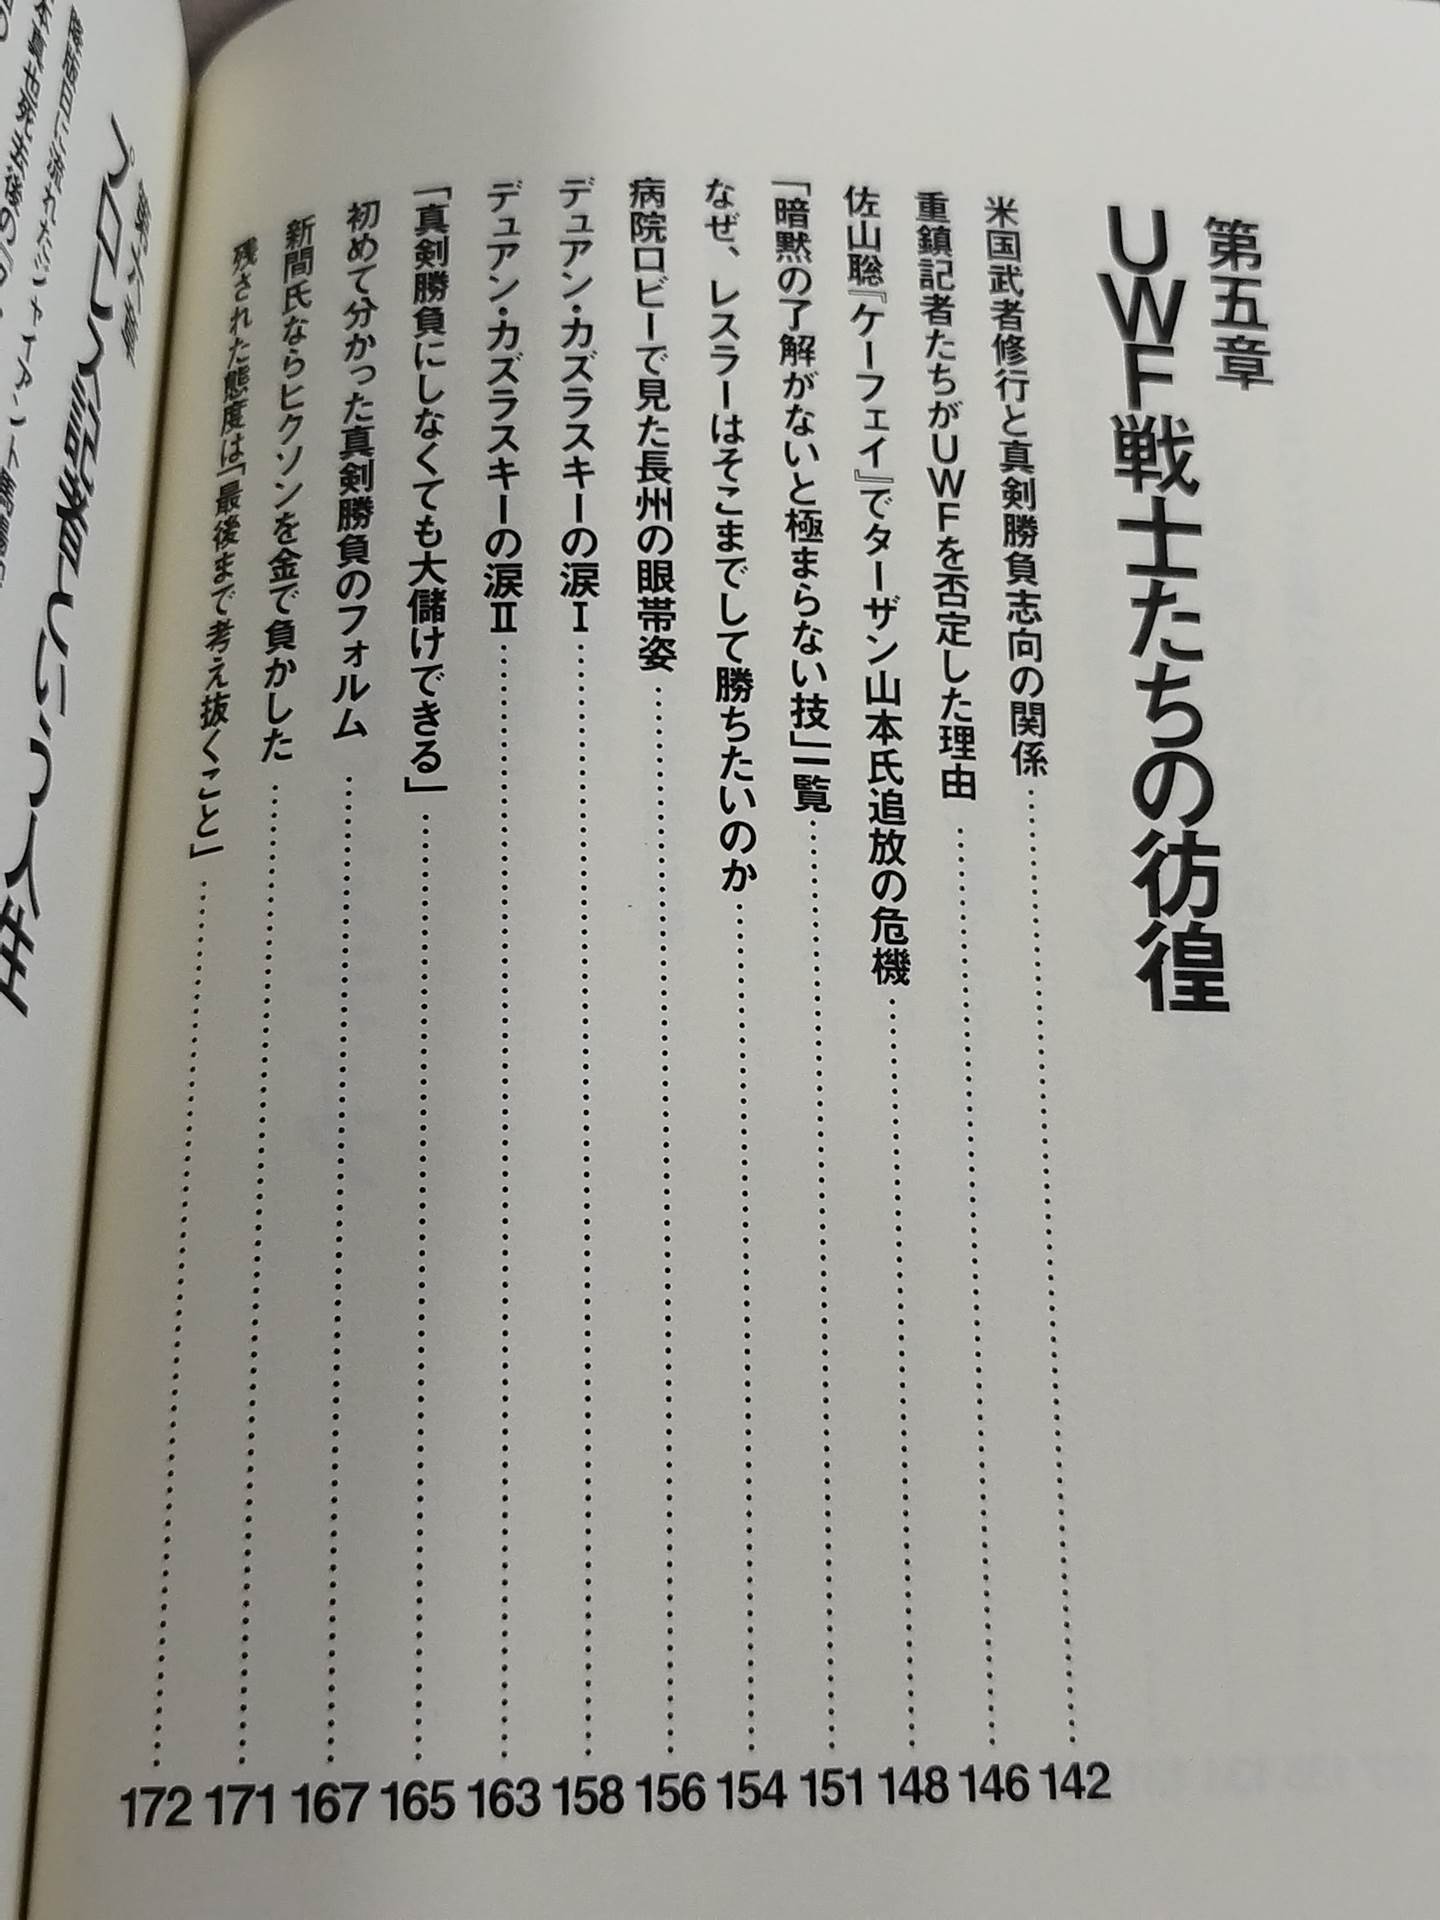 第五章
UWF戦士たちの彷徨
米国武者修行と真剣勝負志向の関係 142
重鎮記者たちがUWFを否定した理由 146
佐山聡『ケーフェイ』でターザン山本氏追放の危機 148
「暗黙の了解がないと極まらない技」一覧 151
なぜ、レスラーはそこまでして勝ちたいのか 154
病院ロビーで見た長州の眼帯姿 156
デュアン・カズラスキーの涙Ⅰ 158
デュアン・カズラスキーの涙Ⅱ 163
「真剣勝負にしなくても大儲けできる」 165
初めて分かった真剣勝負のフォルム 167
新間氏ならヒクソンを金で負かした 171
残された態度は「最後まで考え抜くこと」 172
第六章
プロレス記者という人生